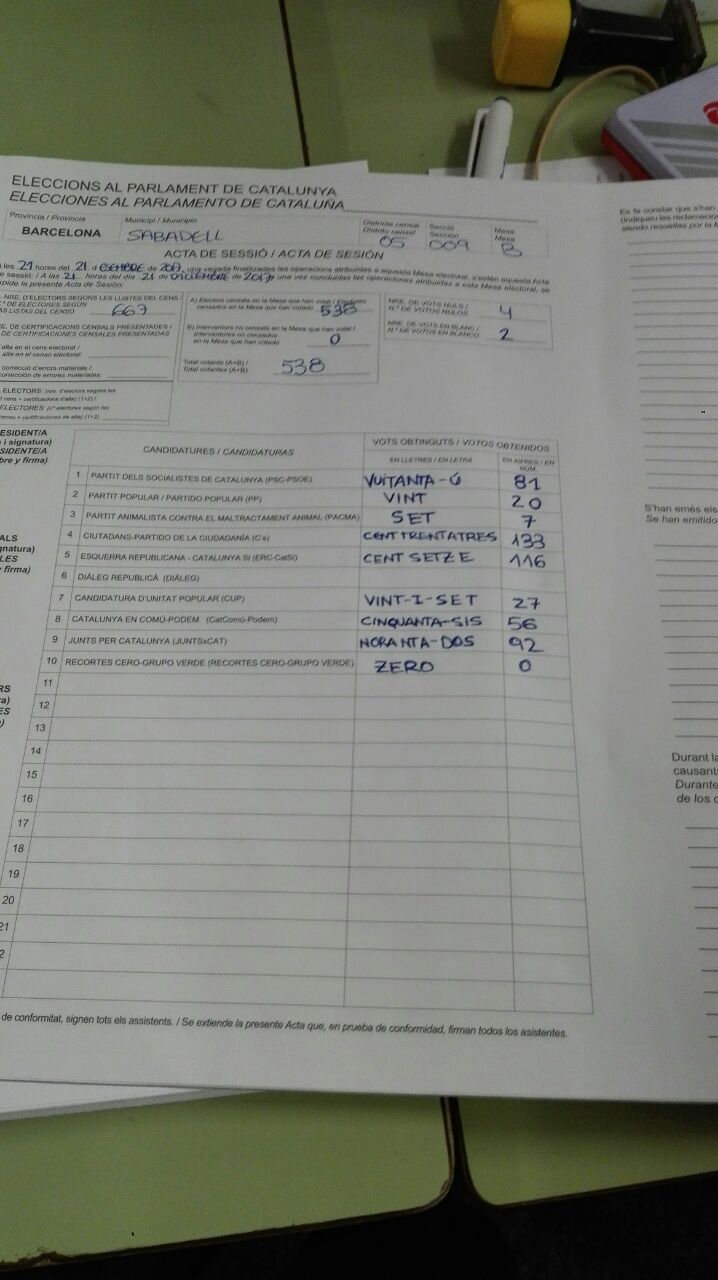 ELECCIONS AL PARLAMENT DE CATALUNYA
ELECCIONES AL PARLAMENTO DE CATALUÑA
Província / Provincia Municipi / Municipio Districte censal Secció Mesa
Distrito censal Sección Mesa
BARCELONA SABADELL 05 009 B
ACTA DE SESSIÓ / ACTA DE SESIÓN
les 21 hores del 21 d de 2017, una vegada finalitzades les operacions atribuïdes a aquesta Mesa electoral, s'estén aquesta Acta
sessió. / A las 21 horas del día 21 de DICIEMBRE de 2017, una vez concluidas las operaciones atribuidas a esta Mesa electoral, se
pide la presente Acta de Sesión:
NRE. D'ELECTORS SEGONS LES LLISTES DEL CENS /
Nº DE ELECTORES SEGÚN
AS LISTAS DEL CENSO 667
E. DE CERTIFICACIONS CENSALS PRESENTADES /
DE CERTIFICACIONES CENSALES PRESENTADAS
alta en el cens electoral /
alta en el censo electoral:
correcció d'errors materials /
corrección de errores materiales:
ELECTORS: (nre. d'electors segons les
cens + certificacions d'alta) (1+2) /
ELECTORES: (nº electores según las
censo + certificaciones de alta) (1+2)
A) Electors censats en la Mesa que han votat / Electores
censados en la Mesa que han votado 538
B) Interventors no censats en la Mesa que han votat /
Interventores no censados
en la Mesa que han votado 0
Total votants (A+B) /
Total votantes (A+B) 538
NRE. DE VOTS NULS /
Nº DE VOTOS NULOS 4
NRE. DE VOTS EN BLANC /
Nº DE VOTOS EN BLANCO 2
ESIDENT/A
i signatura)
SIDENTE/A
bre y firma)
ALS
gnatura)
LES
y firma)
RS
ra)
ES
CANDIDATURES / CANDIDATURAS VOTS OBTINGUTS / VOTOS OBTENIDOS
EN LLETRES / EN LETRA EN XIFRES / EN NÚM.
1 PARTIT DELS SOCIALISTES DE CATALUNYA (PSC-PSOE) VUITANTA-Ú 81
2 PARTIT POPULAR / PARTIDO POPULAR (PP) VINT 20
3 PARTIT ANIMALISTA CONTRA EL MALTRACTAMENT ANIMAL (PACMA) SET 7
4 CIUTADANS-PARTIDO DE LA CIUDADANÍA (C's) CENT TRENTATRES 133
5 ESQUERRA REPUBLICANA - CATALUNYA SÍ (ERC-CatSí) CENT SETZE 116
6 DIÀLEG REPUBLICÀ (DIÀLEG)
7 CANDIDATURA D'UNITAT POPULAR (CUP) VINT-I-SET 27
8 CATALUNYA EN COMÚ-PODEM (CatComú-Podem) CINQUANTA-SIS 56
9 JUNTS PER CATALUNYA (JUNTSxCAT) NORANTA-DOS 92
10 RECORTES CERO-GRUPO VERDE (RECORTES CERO-GRUPO VERDE) ZERO 0
11
12
13
14
15
16
17
18
19
20
21
2
de conformitat, signen tots els assistents. / Se extiende la presente Acta que, en prueba de conformidad, firman todos los asistentes.
Es fa constar que s'han
(Indiqueu les reclamacio
siendo resueltas por la
S'han emès els
Se han emitido
Durant la
causants
Durante
de los c